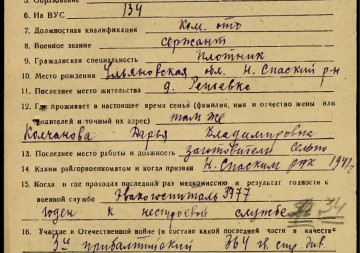 5. Образование
6. На ВУС 134
7. Должностная квалификация Ком. отд
8. Военное звание сержант
9. Гражданская специальность плотник
10. Место рождения Ульяновская обл. Н. Спаский р-н
11. Последнее место жительства д. Репьевка
12. Где проживает в настоящее время семья (фамилия, имя и отчество жены или
родителей и точный их адрес) там же
Колчанова Дарья Владимировна
13. Последнее место работы и должность заготовитель сельпо
14. Каким райгорвоенкоматом и когда призван Н. Спаским рвк 1941 г
15. Когда и где проходил последний раз медкомиссию и результат годности к
военной службе Эвакогоспиталь 3977
годен к нестроевой службе
16. Участие в Отечественной войне (в составе какой последней части и в качестве
3й прибалтийский 364 гв. стр. див.